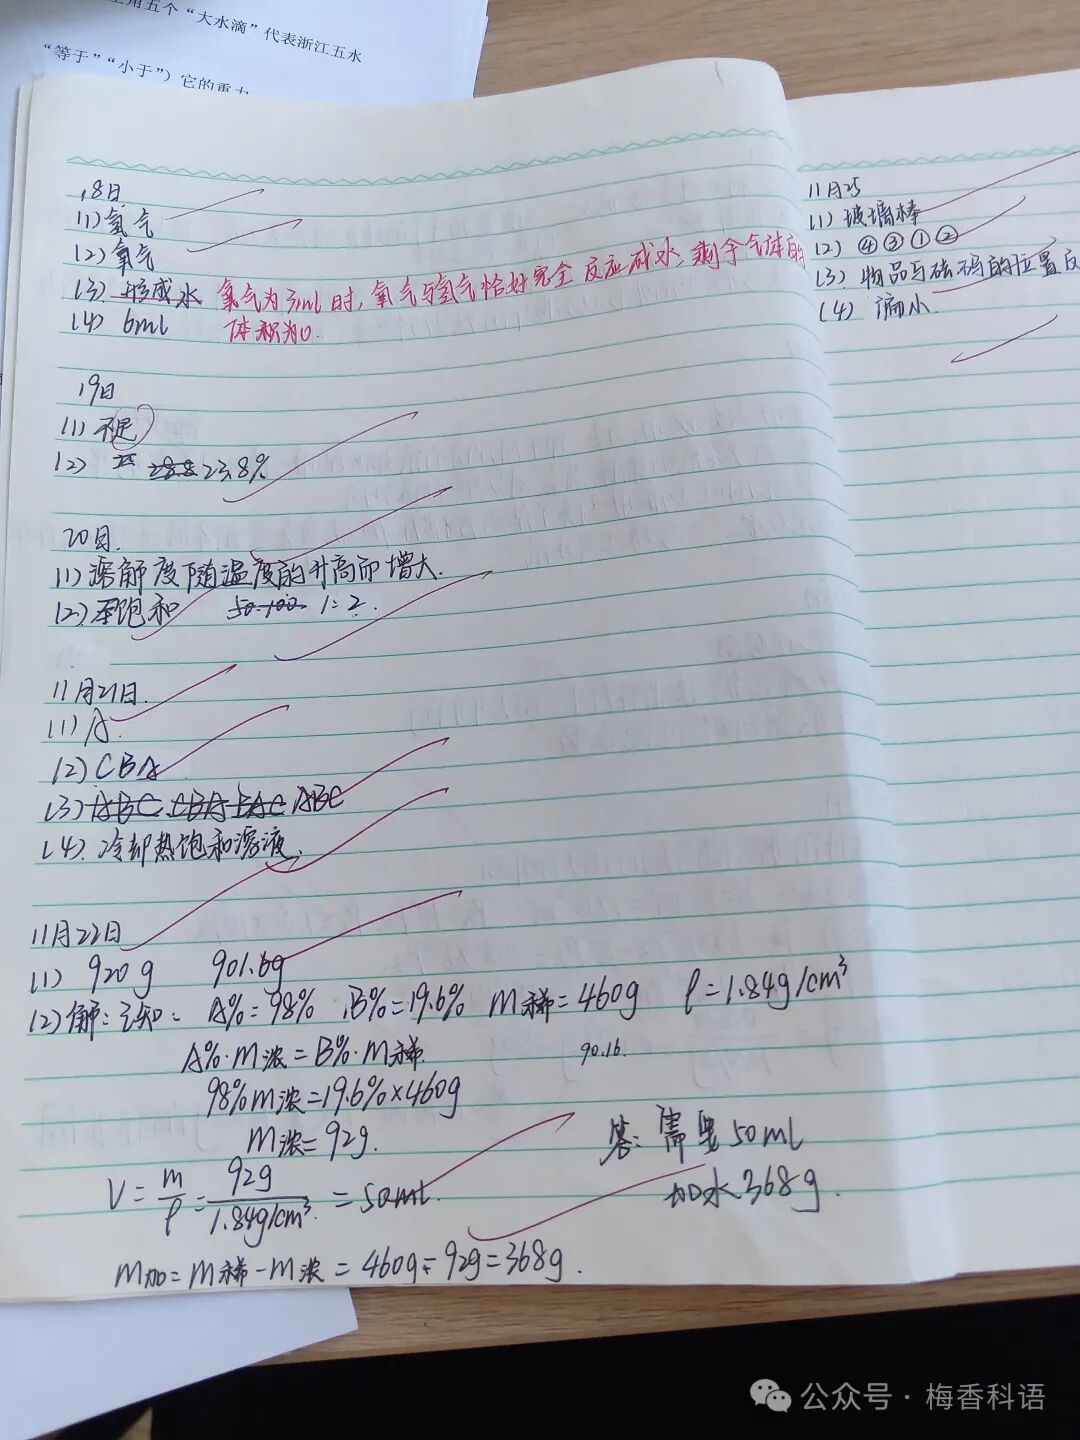 五个“大水滴”代表浙江五水
“等于”“小于”）它的重力
18日
(1)氢气
(2)氧气
(3)形成水 氧气为3ml时，氧气与氢气恰好完全反应成水，剩余气体的
体积为0.
(4) 6ml
19日
(1)不足
(2) 23.8%
20日.
(1)溶解度随温度的升高而增大.
(2)不饱和 1:2.
11月21日.
(1)A.
(2)CBA
(3)ABC CBA BAC ABC
(4).冷却热饱和溶液.
11月22日
(1) 920g 901.6g
(2)解:已知: A%=98% .B%=19.6% m稀=460g ρ=1.84g/cm³
A%·m浓=B%·m稀
90.16.
98%m浓=19.6%×460g
m浓=92g.
V=m/ρ=92g/1.84g/cm³.=50ml.
答:需要50ml
加水368g.
m加=m稀-m浓=460g-92g=368g.
11月25
(1)玻璃棒
(2)④③①②
(3)物品与砝码的位置反
(4)偏小.
公众号·梅香科语